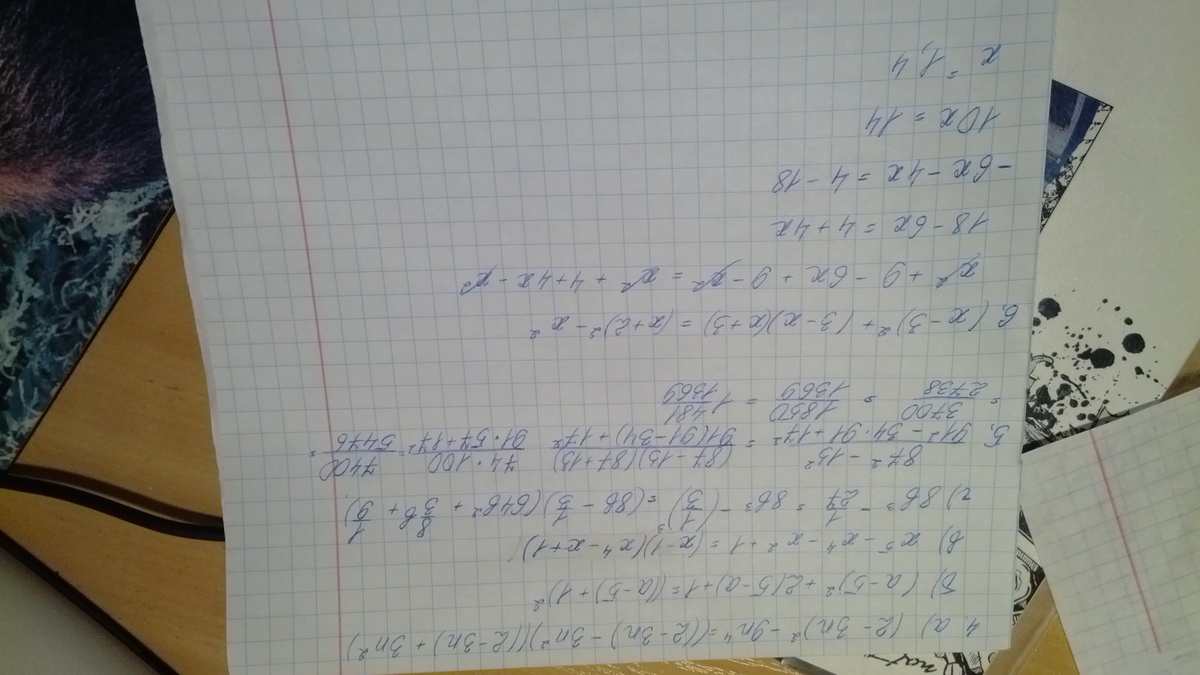 4. а) (2 - 3n)² - 9n⁴ = ((2 - 3n) - 3n²)((2 - 3n) + 3n²)
б) (a - 5)² + 2(5 - a) + 1 = ((a - 5) + 1)²
в) x⁵ - x⁴ - 2x + 1 = (x - 1)(x⁴ - x + 1)
г) 8b³ - 1/27 = 8b³ - (1/3)³ = (8b - 1/3)(64b² + 8/3 b + 1/9)
5. (87² - 13²)/(91² - 34·91 + 17²) = (87 - 13)(87 + 13)/(91(91 - 34) + 17²) = 74·100/(91·57 + 17²) = 7400/5476 =
= 3700/2738 = 1850/1369 = 1 481/1369
6. (x - 3)² + (3 - x)(x + 3) = (x + 2)² - x²
x² + 9 - 6x + 9 - x² = x² + 4 + 4x - x²
18 - 6x = 4 + 4x
- 6x - 4x = 4 - 18
10x = 14
x = 1,4